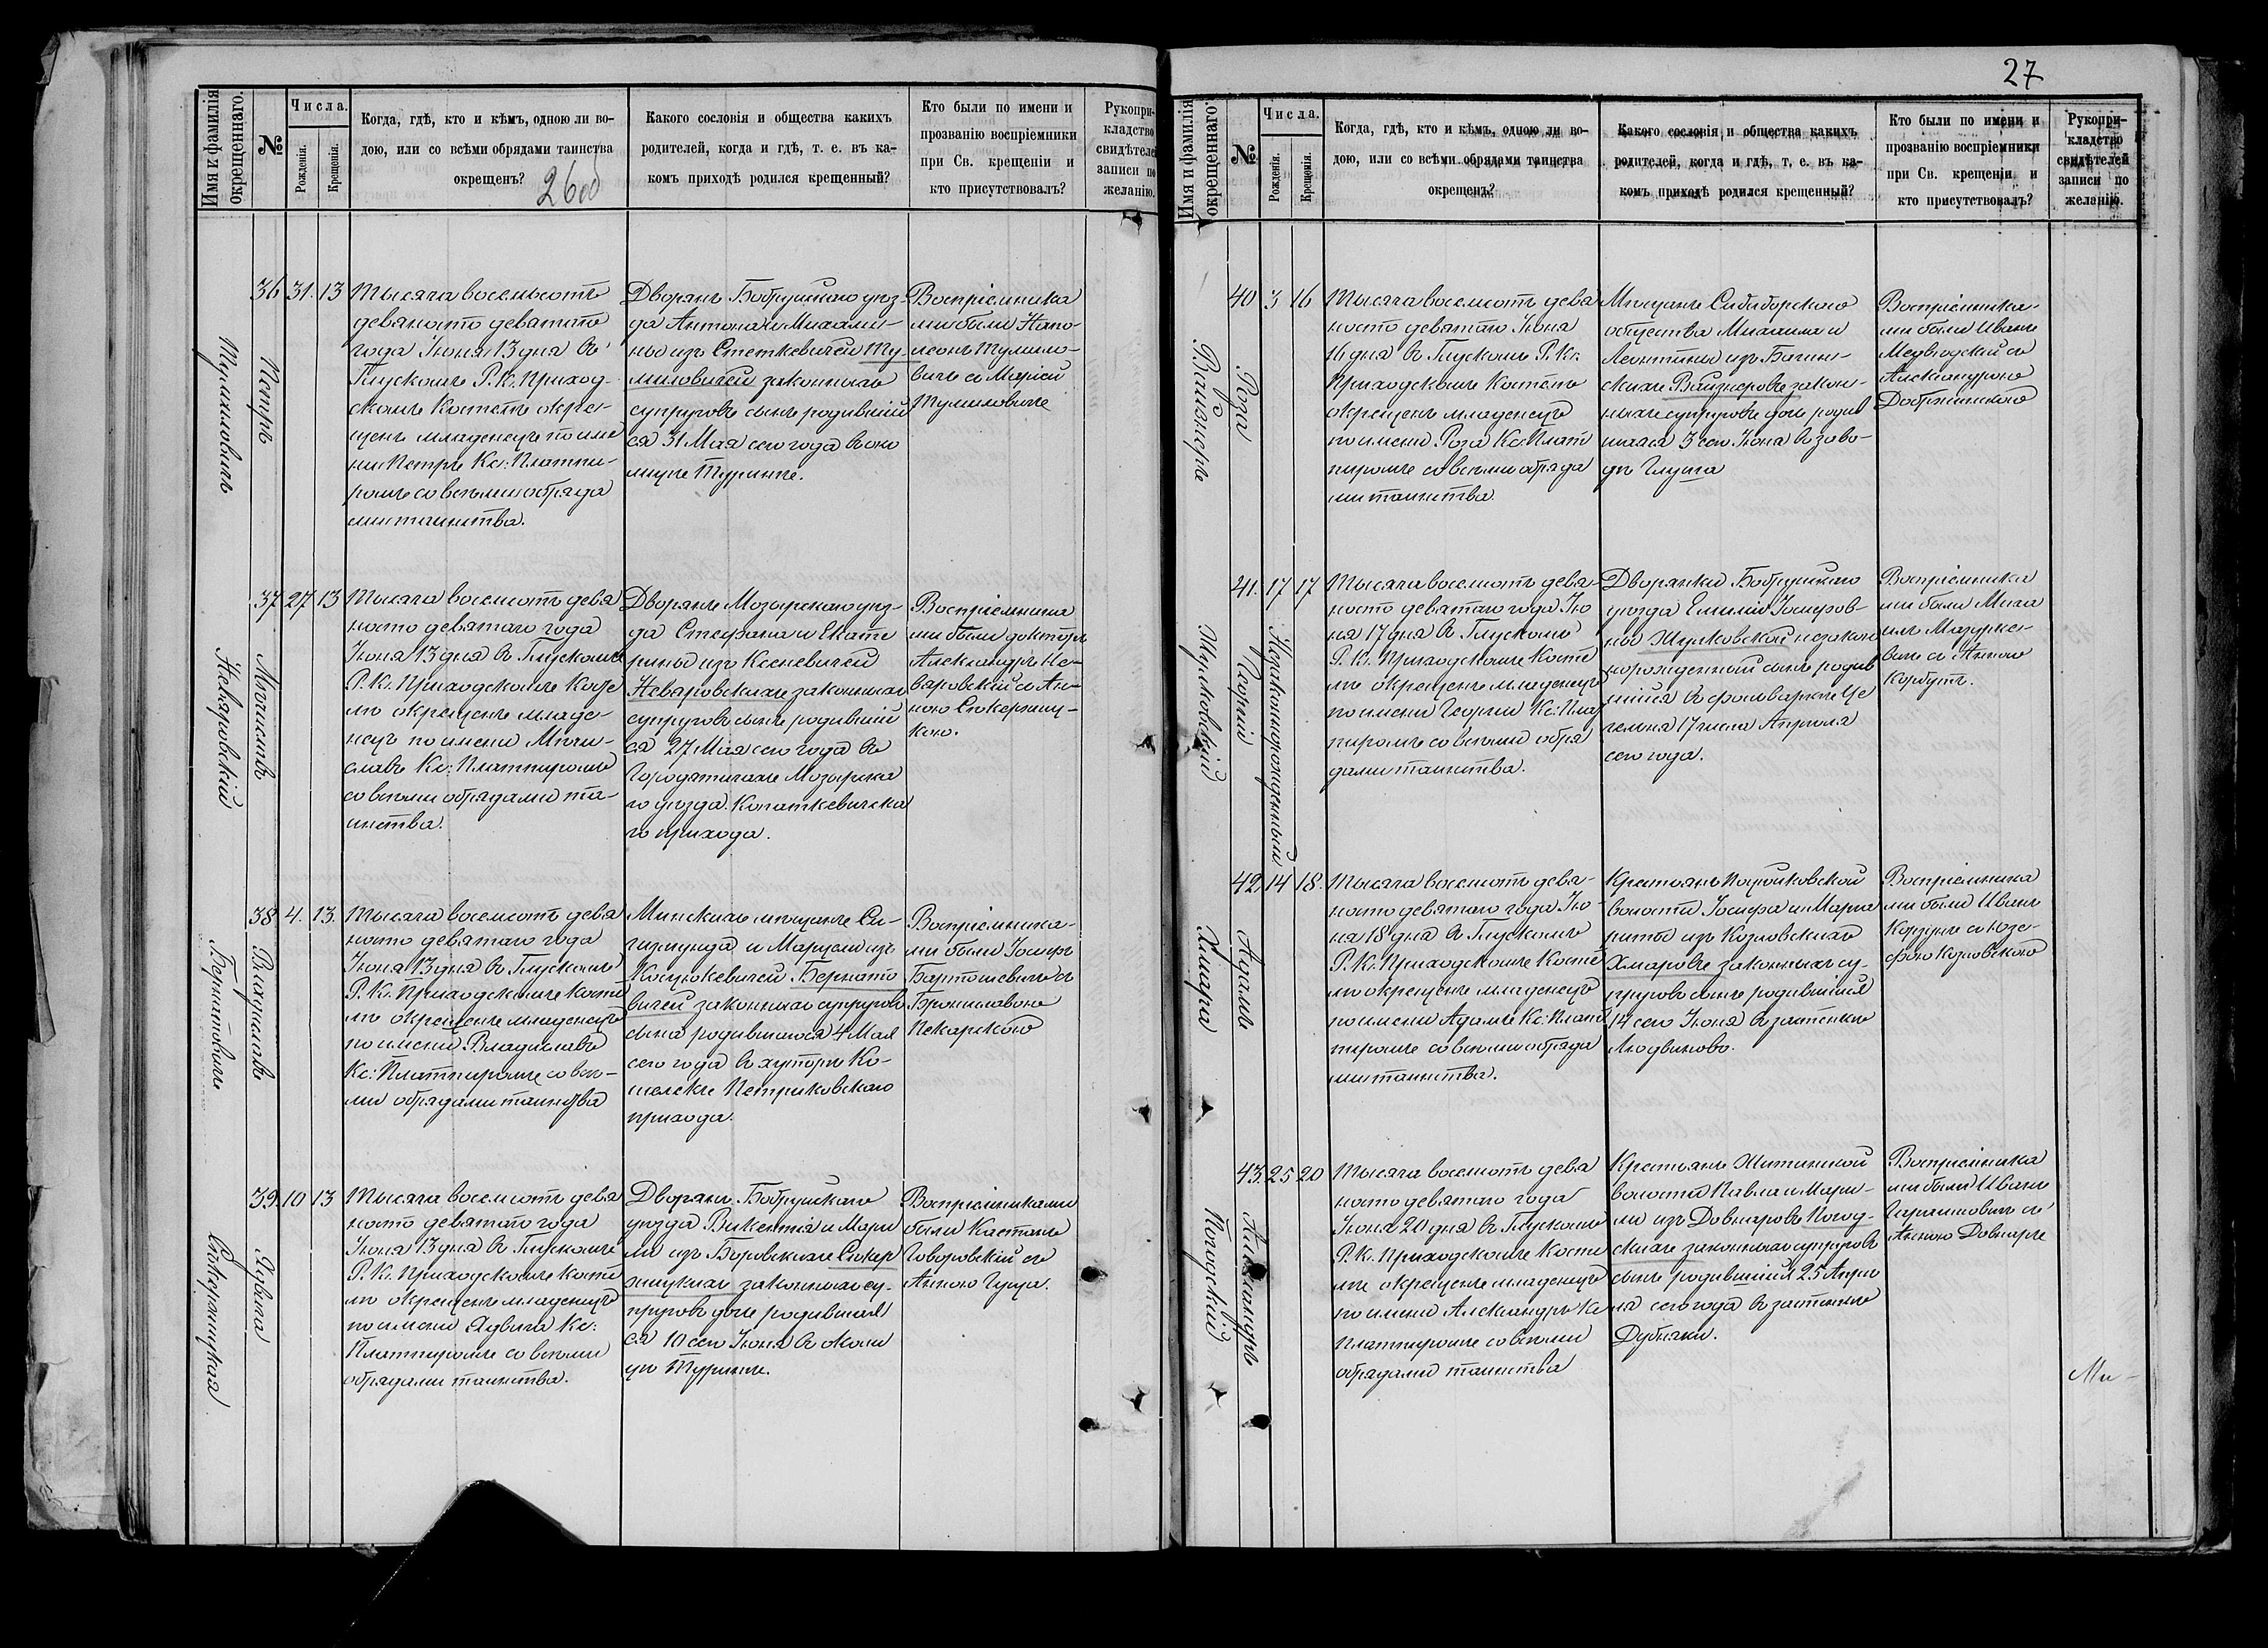 27
Имя и фамилія
окрещеннаго.
№
Числа.
Рожденія.
Крещенія.
Когда, гдѣ, кто и кѣмъ, одною ли во-
дою, или со всѣми обрядами таинства
окрещенъ?
Какого сословія и общества какихъ
родителей, когда и гдѣ, т. е. въ ка-
комъ приходѣ родился крещенный?
Кто были по имени и
прозванію воспріемники
при Св. крещеніи и
кто присутствовалъ?
Рукопри-
кладство
свидѣтелей
записи по
желанію.
Петръ
36 31. 13
Тысяча восемьсотъ
девяносто девятаго
года Іюня 13 дня въ
Глускомъ Р. К. Приход-
скомъ Костелѣ окре-
щенъ младенецъ по име
ни Петръ Кс: Платпи-
ромъ со всѣми обряда
ми таинства.
Дворянъ Бобруйскаго уѣз-
да Антона и Михали-
ны изъ Стеткевичей Ту-
миловичей законныхъ
супруговъ сынъ родившій
ся 31 Мая сего года въ око
лицѣ Туринъ.
Воспріемника
ми были Напо-
леонъ Тумило-
вичъ съ Маріей
Мечиславъ
Неваровскій
37 27 13
Тысяча восемсотъ девя
носто девятаго года
Іюня 13 дня въ Глускомъ
Р. К. Приходскомъ Косте
лѣ окрещенъ младе-
нецъ по имени Мечи-
славъ Кс: Платпиромъ
со всѣми обрядами та-
инства.
Дворянъ Мозырскаго уѣз-
да Стефана и Екате
рины изъ Ксеневичей
Неваровскихъ законныхъ
супруговъ сынъ родившій
ся 27 Мая сего года въ
Городятичахъ Мозырска
го уѣзда Копаткевичска
го прихода.
Воспріемника
ми были докторъ
Александръ Не-
варовскій съ Ан-
ною Стокержиц-
кою.
Владиславъ
Бернатовичъ
38. 4. 13.
Тысяча восемсотъ девя
носто девятаго года
Іюня 13 дня въ Глускомъ
Р. К. Приходскомъ Косте
лѣ окрещенъ младенецъ
по имени Владиславъ
Кс: Платпиромъ со всѣ-
ми обрядами таинства
Минскихъ мѣщанъ Си-
гизмунда и Марцели изъ
Косцюкевичей Бернато
вичей законныхъ супруговъ
сына родившагося 4 Мая
сего года въ хуторѣ Ко-
Петриковскаго
прихода.
Воспріемника-
ми были Іосифъ
Бартошевичъ съ
Брониславою
Пекарскою
Ядвига
39. 10 13
Тысяча восемсотъ девя
носто девятаго года
Іюня 13 дня въ Глускомъ
Р. К. Приходскомъ Косте
лѣ окрещенъ младенецъ
по имени Ядвига Кс:
Платпиромъ со всѣми
обрядами таинства.
Дворянъ Бобруйскаго
уѣзда Викентія и Мари
ли изъ Боровскихъ Стокер
жицкихъ законныхъ су-
пруговъ дочь родившая
ся 10 сего Іюня въ околи
цѣ Туринъ.
Воспріемниками
были Кастанъ
Говоровскій съ
Анною Гуща.
Имя и фамилія
окрещеннаго.
№
Числа.
Рожденія.
Крещенія.
Когда, гдѣ, кто и кѣмъ, одною ли во-
дою, или со всѣми обрядами таинства
окрещенъ?
Какого сословія и общества какихъ
родителей, когда и гдѣ, т. е. въ ка-
комъ приходѣ родился крещенный?
Кто были по имени и
прозванію воспріемники
при Св. крещеніи и
кто присутствовалъ?
Рукопри-
кладство
свидѣтелей
записи по
желанію.
Роза
Вайзнеръ
40 3 16
Тысяча восемсотъ девя
носто девятаго Іюня
16 дня въ Глускомъ Р. К.
Приходскомъ Костелѣ
окрещенъ младенецъ
по имени Роза Кс: Плат
пиромъ со всѣми обряда
ми таинства.
Мѣщанъ
общества Михаила и
Леонтины изъ Багин-
скихъ Вайзнеровъ закон-
ныхъ супруговъ дочь родив
шаяся 3 сего Іюня въ заво-
дѣ Глуша
Воспріемника-
ми были Иванъ
Медвѣдскій съ
Александрою
Добржинскою
Георгій
Жулковскій
Незаконнорожденный
41. 17 17
Тысяча восемсотъ девя-
носто девятаго года Ію
ня 17 дня въ Глускомъ
Р. К. Приходскомъ Косте
лѣ окрещенъ младенецъ
по имени Георгій Кс: Плат
пиромъ со всѣми обря
дами таинства.
Дворянки Бобруйскаго
уѣзда Емиліи Іосифов-
ны Жулковской незакон
норожденный сынъ родив
шійся въ фольваркѣ
17 числа Апрѣля
сего года.
Воспріемника
ми были Миха
илъ Мазурке-
вичъ съ Анною
Корбутъ.
Адамъ
Хмара
42. 14 18.
Тысяча восемсотъ девя-
носто девятаго года Ію-
ня 18 дня въ Глускомъ
Р. К. Приходскомъ Косте
лѣ окрещенъ младенецъ
по имени Адамъ Кс: Плат
пиромъ со всѣми обряда
ми таинства.
Крестьянъ
волости Іосифа и Марга
риты изъ Козловскихъ
Хмаровъ законныхъ су-
пруговъ сынъ родившійся
14 сего Іюня въ застенкѣ
Людвиново.
Воспріемника
ми были Иванъ
Корзунъ съ Юзе-
фою Козловскою
Александръ
Погодскій
43. 25 20
Тысяча восемсотъ девя
носто девятаго года
Іюня 20 дня въ Глускомъ
Р. К. Приходскомъ Косте
лѣ окрещенъ младенецъ
по имени Александръ Кс
Платпиромъ со всѣми
обрядами таинства
Крестьянъ Житинской
волости Павла и Мари-
ли изъ Довнаровъ Погод-
скихъ законныхъ супруговъ
сынъ родившійся 25 Апрѣ
ля сего года въ застенкѣ
Дубники.
Воспріемника
ми были Иванъ
Герасимовичъ съ
Анною Довнаръ